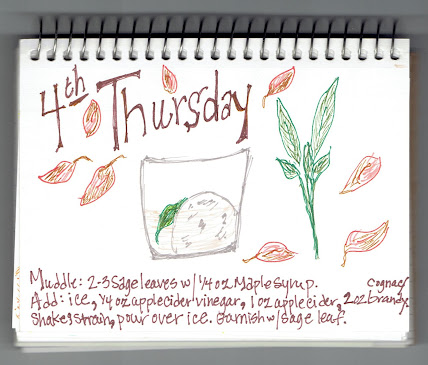 4th Thursday
Muddle: 2-3 Sage leaves w/ 1/4 oz Maple Syrup.
Cognac/
Add: ice, 1/4 oz apple cider vinegar, 1 oz apple cider, 2oz brandy.
Shake, strain, pour over ice. Garnish w/ sage leaf.